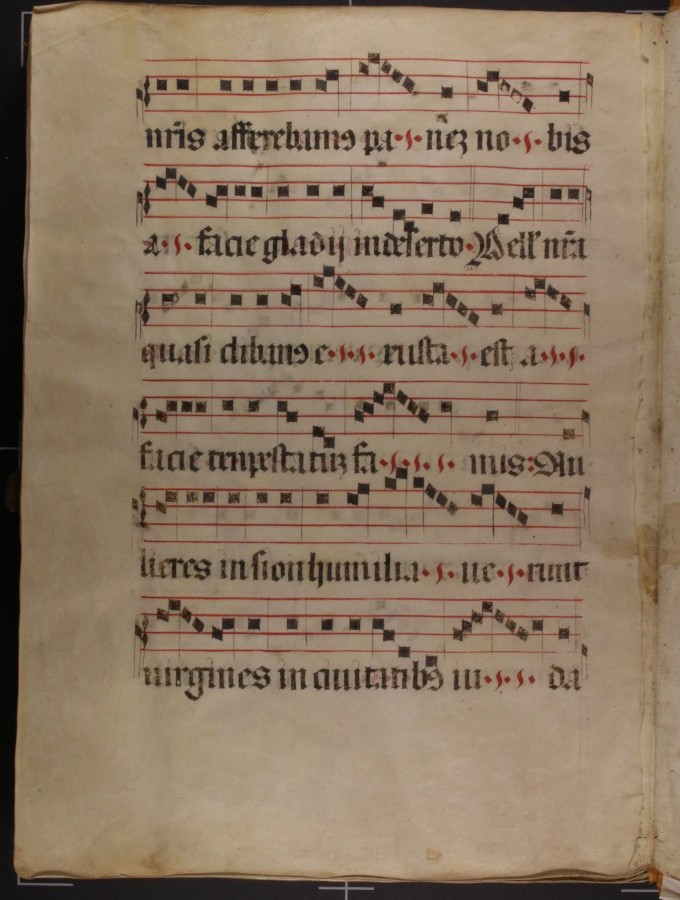 nr̄is afferebamꝯ pa·s·neꝫ no·s·bis
a·s· facie gladij in deserto·Pell' nr̄a
quasi clibanꝯ e·s·s·xusta·s·est a·s·s·
facie tempestatuꝫ fa·s·s·s· mis:Mu
lieres in sion humilia·s·ue·s·runt
uirgines in ciuitatibꝯ iu·s·s· da